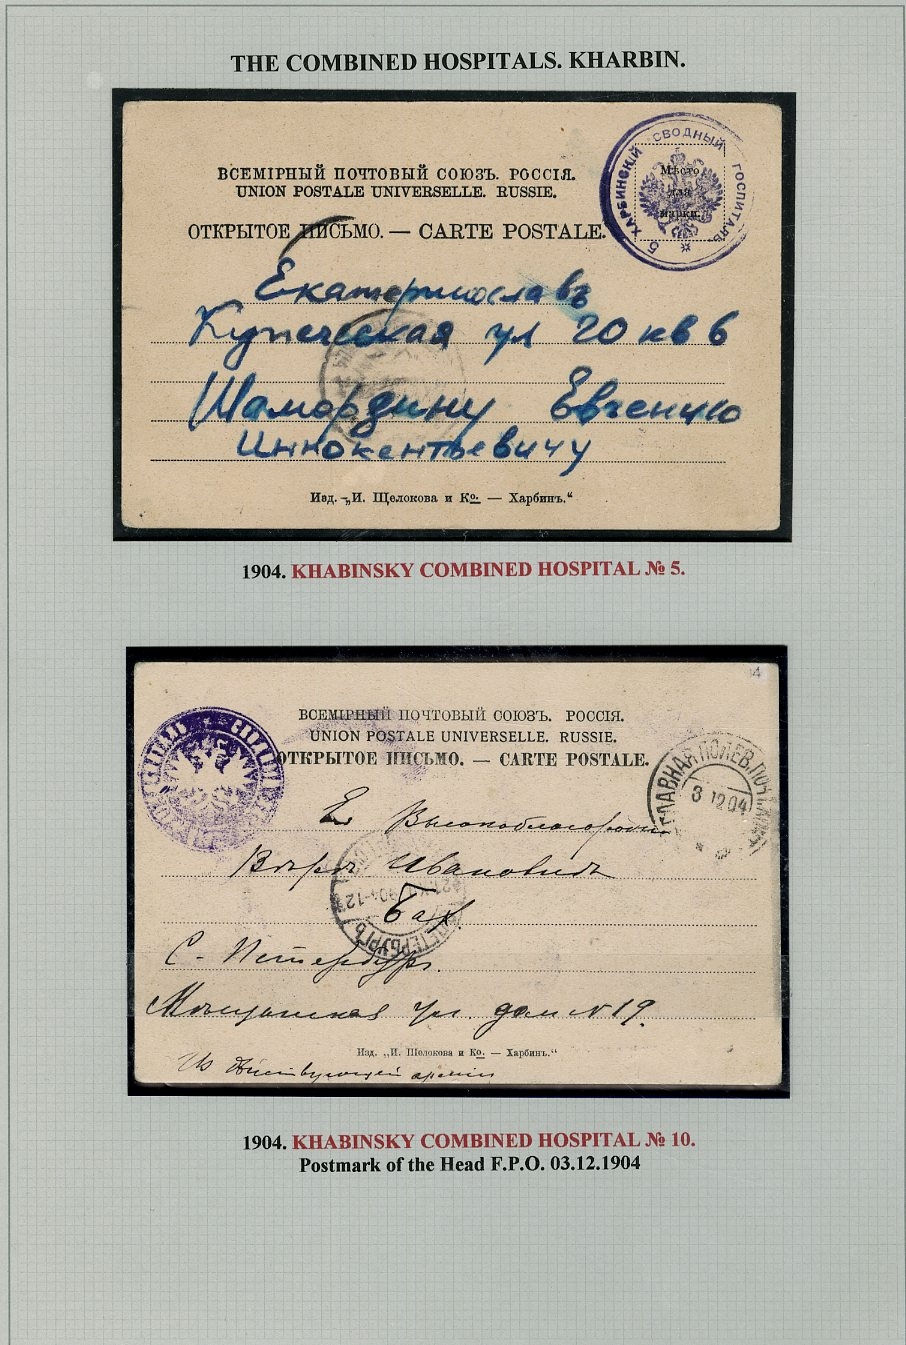 THE COMBINED HOSPITALS. KHARBIN.
5 ХАРБИНСКІЙ СВОДНЫЙ ГОСПИТАЛЬ
Мѣсто
для
марки.
ВСЕМІРНЫЙ ПОЧТОВЫЙ СОЮЗЪ. РОССІЯ.
UNION POSTALE UNIVERSELLE. RUSSIE.
ОТКРЫТОЕ ПИСЬМО. — CARTE POSTALE.
Екатеринославъ
Купеческая ул 20 кв 6
Шамордину Евгенію
Иннокентьевичу
Изд. „И. Щелокова и Ко. — Харбинъ.“
1904. KHABINSKY COMBINED HOSPITAL № 5.
4
ВСЕМІРНЫЙ ПОЧТОВЫЙ СОЮЗЪ. РОССІЯ.
UNION POSTALE UNIVERSELLE. RUSSIE.
ОТКРЫТОЕ ПИСЬМО. — CARTE POSTALE.
ГЛАВНАЯ ПОЛЕВ. ПОЧТ.
3 12 04
Ея Высокоблагородію
Вѣрѣ Ивановнѣ
Бах
С.-Петербургъ.
Мѣщанская ул. дом № 19.
Изд. „И. Щелокова и Ко. — Харбинъ.“
Из Действующей арміи
1904. KHABINSKY COMBINED HOSPITAL № 10.
Postmark of the Head F.P.O. 03.12.1904